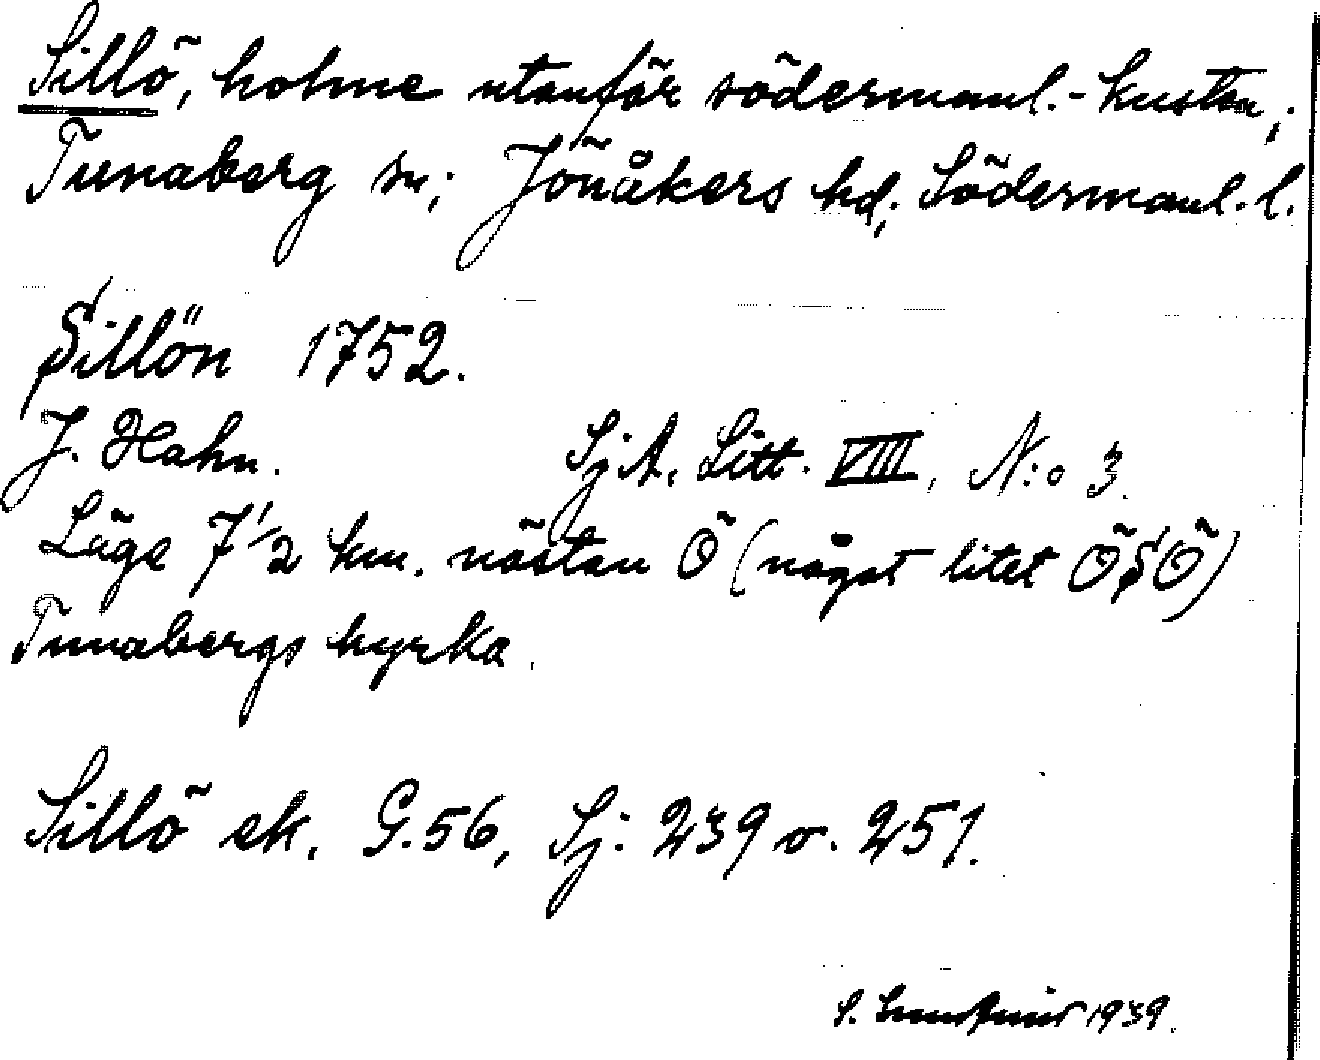 Sillö, holme utanför södermanl.-kusten;
Tunaberg sn; Jönåkers hd; Södermanl. l.
Sillön 1752.
J. Hahn. SjA. Litt. VIII, N:o 3.
Läge 7 1/2 km. nästan Ö (något litet ÖSÖ)
Tunabergs kyrka.
Sillö ek. G.56, Sj: 239 o. 251.
S. 1939.